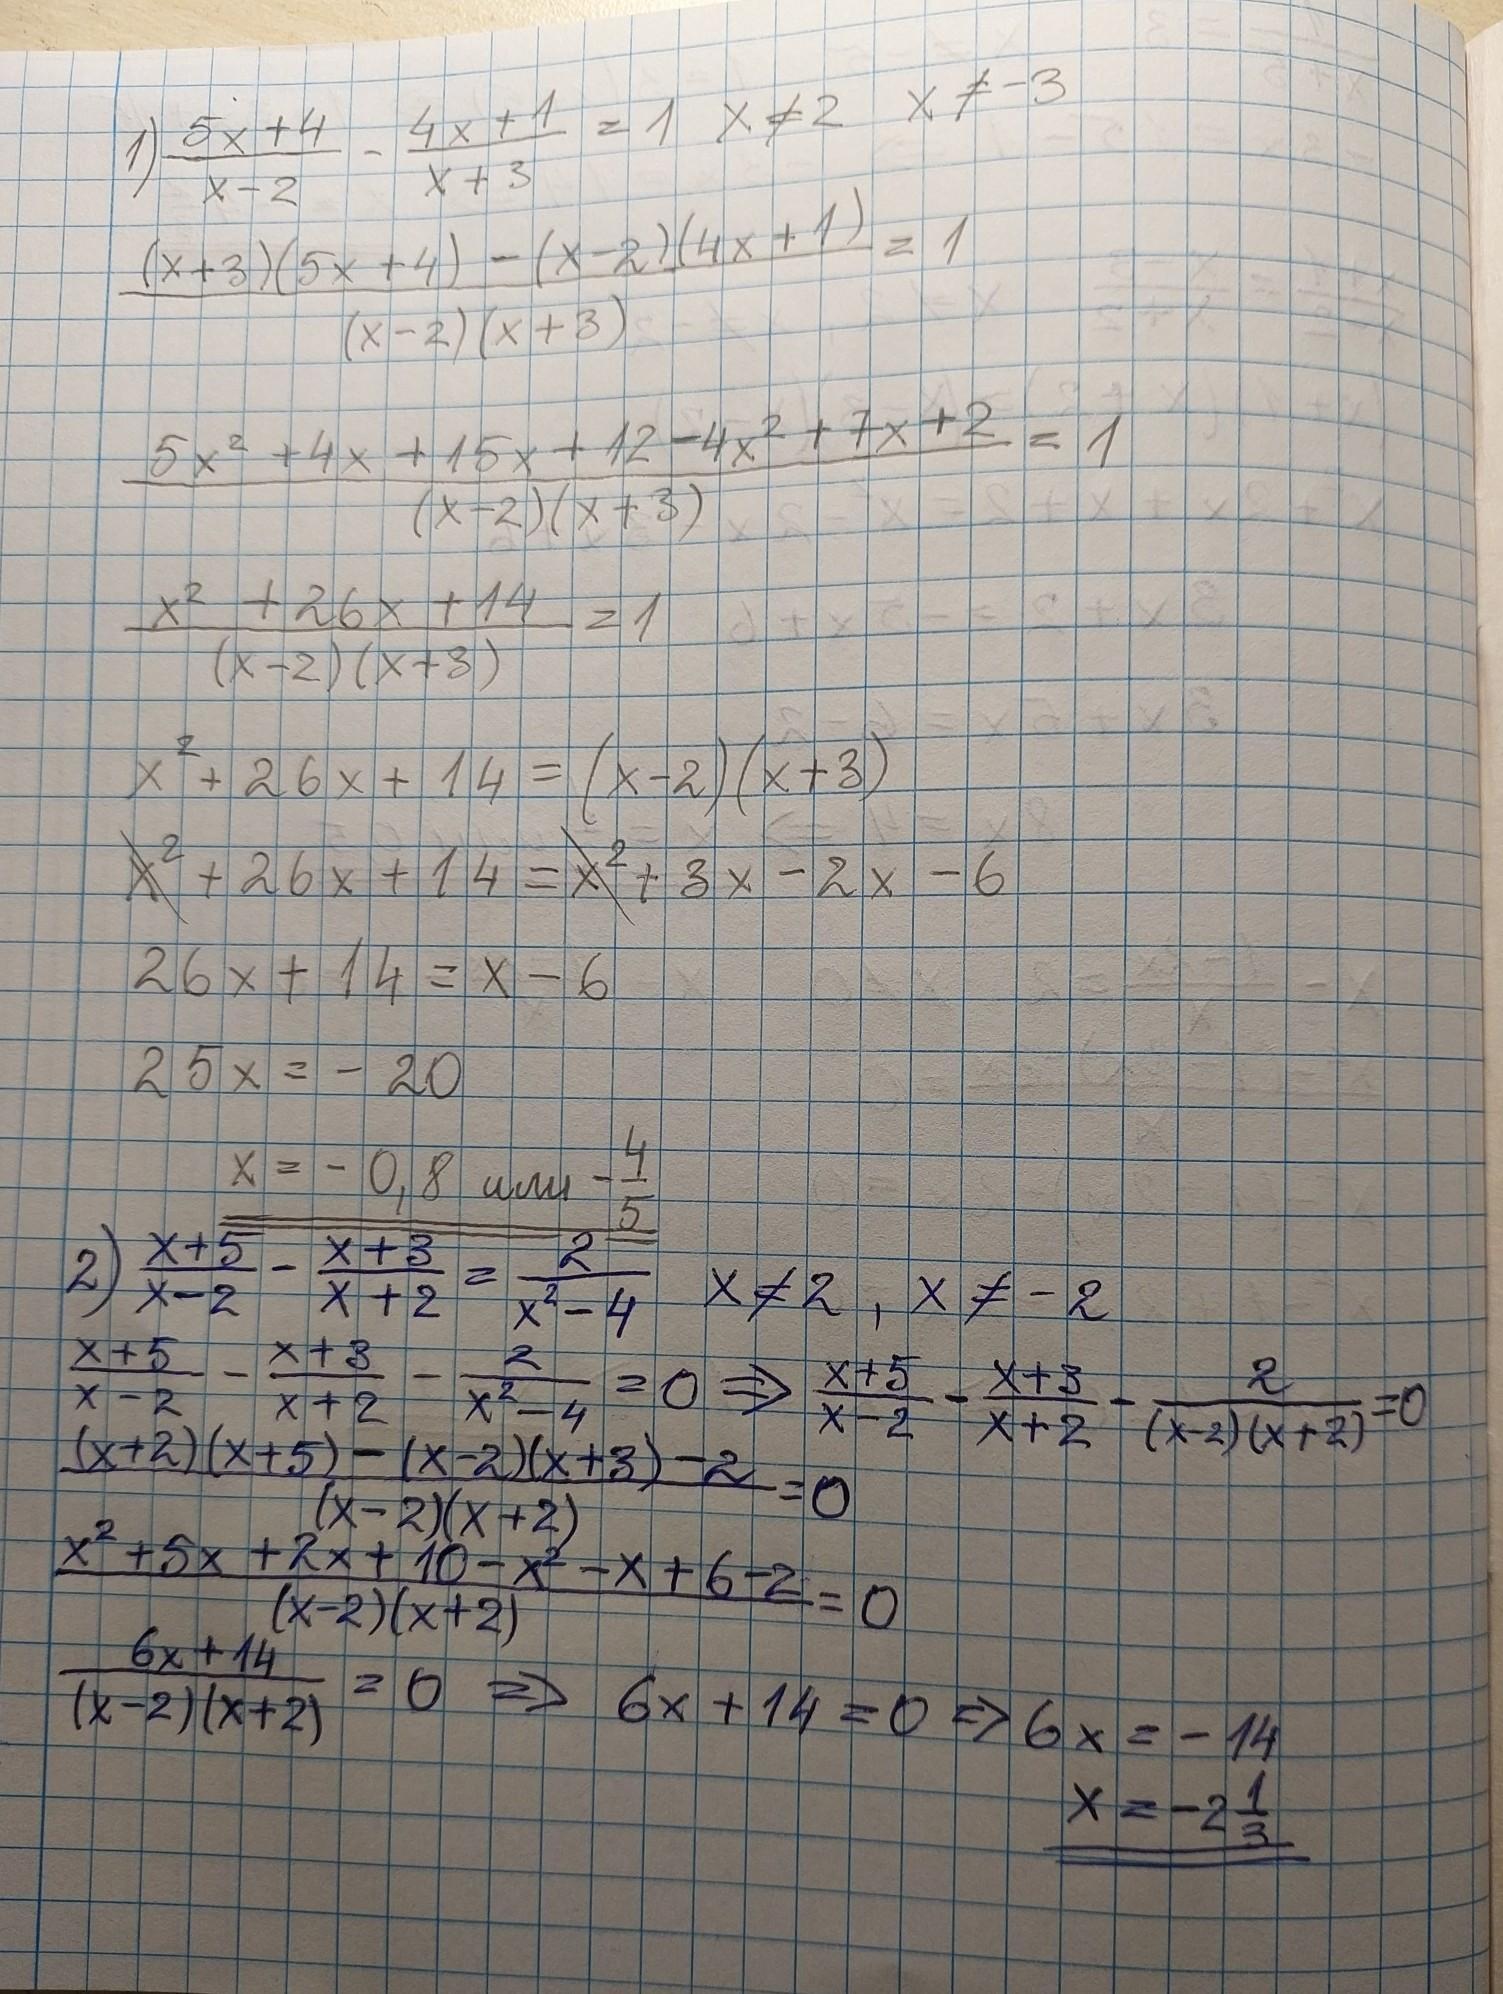 1) (5x+4)/(x-2) - (4x+1)/(x+3) = 1 x≠2 x≠-3
((x+3)(5x+4) - (x-2)(4x+1))/((x-2)(x+3)) = 1
(5x² + 4x + 15x + 12 - 4x² + 7x + 2)/((x-2)(x+3)) = 1
(x² + 26x + 14)/((x-2)(x+3)) = 1
x² + 26x + 14 = (x-2)(x+3)
x² + 26x + 14 = x² + 3x - 2x - 6
26x + 14 = x - 6
25x = - 20
x = - 0,8 или -4/5
2) (x+5)/(x-2) - (x+3)/(x+2) = 2/(x²-4) x≠2, x≠-2
(x+5)/(x-2) - (x+3)/(x+2) - 2/(x²-4) = 0 => (x+5)/(x-2) - (x+3)/(x+2) - 2/((x-2)(x+2)) = 0
((x+2)(x+5) - (x-2)(x+3) - 2)/((x-2)(x+2)) = 0
(x² + 5x + 2x + 10 - x² - x + 6 - 2)/((x-2)(x+2)) = 0
(6x+14)/((x-2)(x+2)) = 0 => 6x + 14 = 0 => 6x = - 14
x = -2 1/3